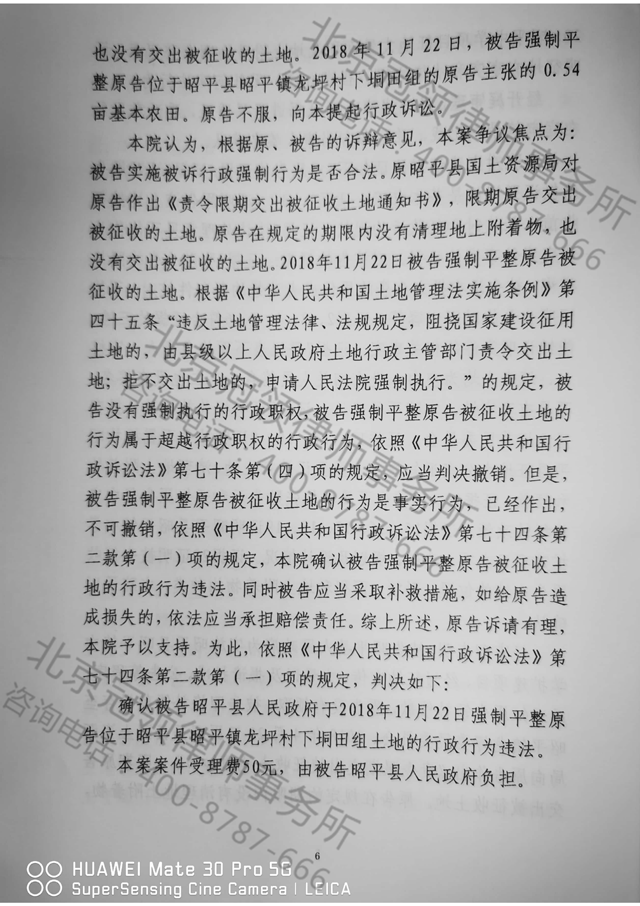 也没有交出被征收的土地。2018年11月22日，被告强制平
整原告位于昭平县昭平镇龙坪村下垌田组的原告主张的0.54
亩基本农田。原告不服，向本提起行政诉讼。
本院认为，根据原、被告的诉辩意见，本案争议焦点为：
被告实施被诉行政强制行为是否合法。原昭平县国土资源局对
原告作出《责令限期交出被征收土地通知书》，限期原告交出
被征收的土地。原告在规定的期限内没有清理地上附着物，也
没有交出被征收的土地。2018年11月22日被告强制平整原告被
征收的土地。根据《中华人民共和国土地管理法实施条例》第
四十五条“违反土地管理法律、法规规定，阻挠国家建设征用
土地的，由县级以上人民政府土地行政主管部门责令交出土
地；拒不交出土地的，申请人民法院强制执行。”的规定，被
告没有强制执行的行政职权，被告强制平整原告被征收土地的
行为属于超越行政职权的行政行为，依照《中华人民共和国行
政诉讼法》第七十条第（四）项的规定，应当判决撤销。但是，
被告强制平整原告被征收土地的行为是事实行为，已经作出，
不可撤销，依照《中华人民共和国行政诉讼法》第七十四条第
二款第（一）项的规定，本院确认被告强制平整原告被征收土
地的行政行为违法。同时被告应当采取补救措施，如给原告造
成损失的，依法应当承担赔偿责任。综上所述，原告诉请有理，
本院予以支持。为此，依照《中华人民共和国行政诉讼法》第
七十四条第二款第（一）项的规定，判决如下：
确认被告昭平县人民政府于2018年11月22日强制平整原
告位于昭平县昭平镇龙坪村下垌田组土地的行政行为违法。
本案案件受理费50元，由被告昭平县人民政府负担。
6
北京冠领律师事务所
咨询电话：400-8787-666
北京冠领律师事务所
咨询电话：400-8787-666
北京冠领律师事务所
咨询电话：400-8787-666
HUAWEI Mate 30 Pro 5G
SuperSensing Cine Camera | LEICA